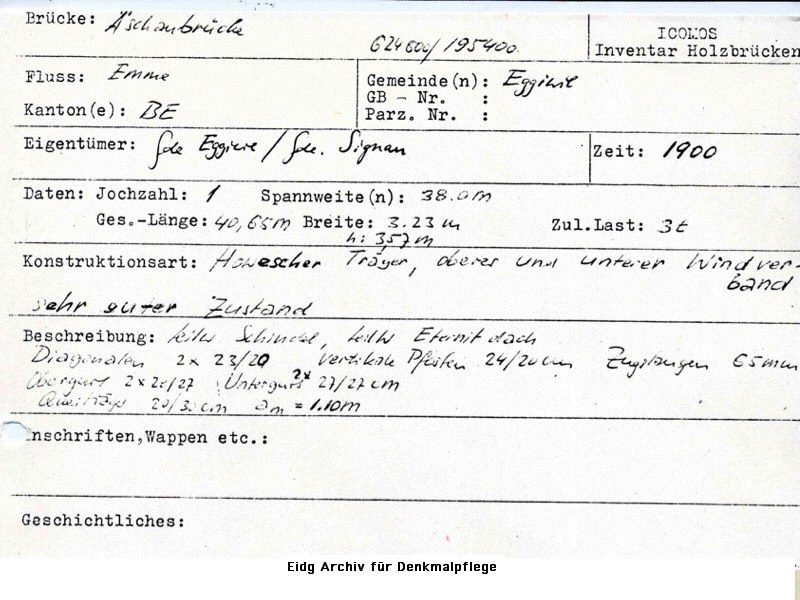 Brücke: Äschaubrücke 624600/195400. ICOMOS
Inventar Holzbrücken
Fluss: Emme Gemeinde(n): Eggiwil
GB - Nr. :
Kanton(e): BE Parz. Nr. :
Eigentümer: Gde Eggiwil / Gde. Signau Zeit: 1900
Daten: Jochzahl: 1 Spannweite(n): 38.0m
Ges.-Länge: 40,65m Breite: 3.23 m Zul.Last: 3t
h: 3,57m
Konstruktionsart: Howescher Träger, oberer und unterer Windver-
band
sehr guter Zustand
Beschreibung: teils Schindel, teils Eternitdach
Diagonalen 2x 23/20 Vertikale Pfosten 24/20cm Zugstangen 65mm
Obergurt 2x 20/27 Untergurt 2x 27/27cm
Querträger 20/30cm am = 1.10m
Inschriften,Wappen etc.:
Geschichtliches:
Eidg Archiv für Denkmalpflege